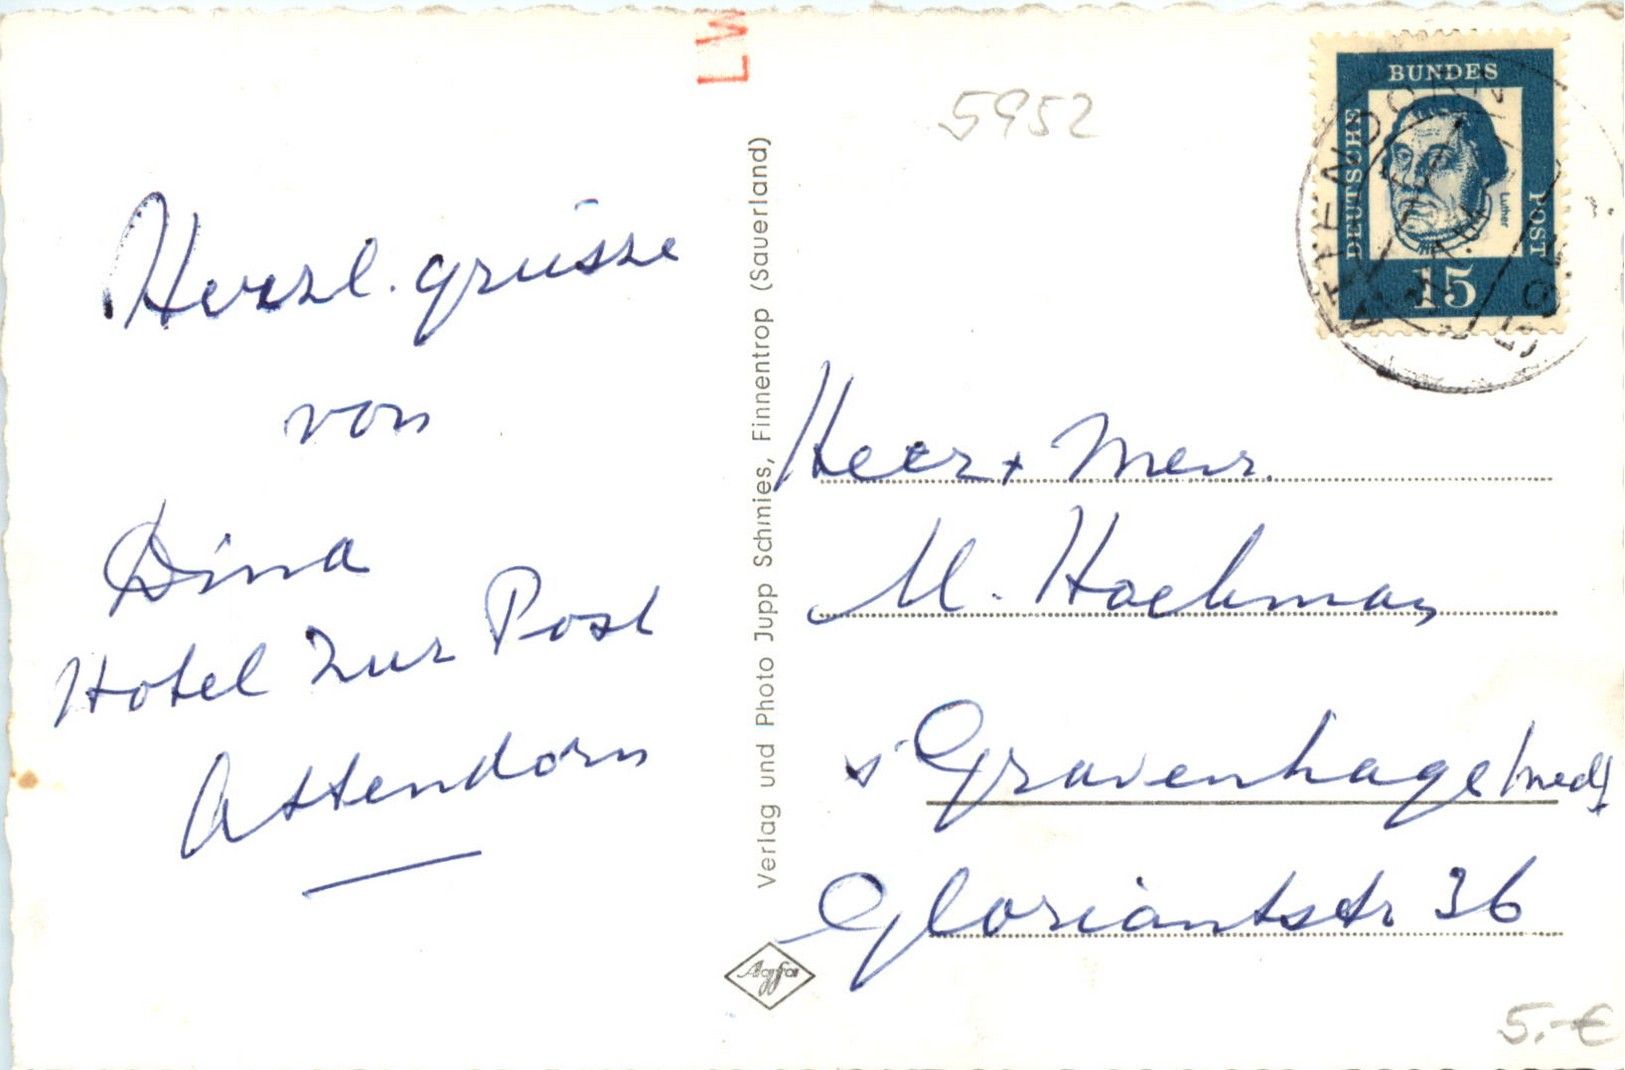 Herzl. grüsse
von
Dina
Hotel zur Post
Attendorn
LW
Verlag und Photo Jupp Schmies, Finnentrop (Sauerland)
Agfa
5952
DEUTSCHE
BUNDES
POST
Luther
15
ATTENDORN
Heer + Mevr.
M. Hoekman
s Gravenhage (ned)
Gloriantstr 36
5.-€